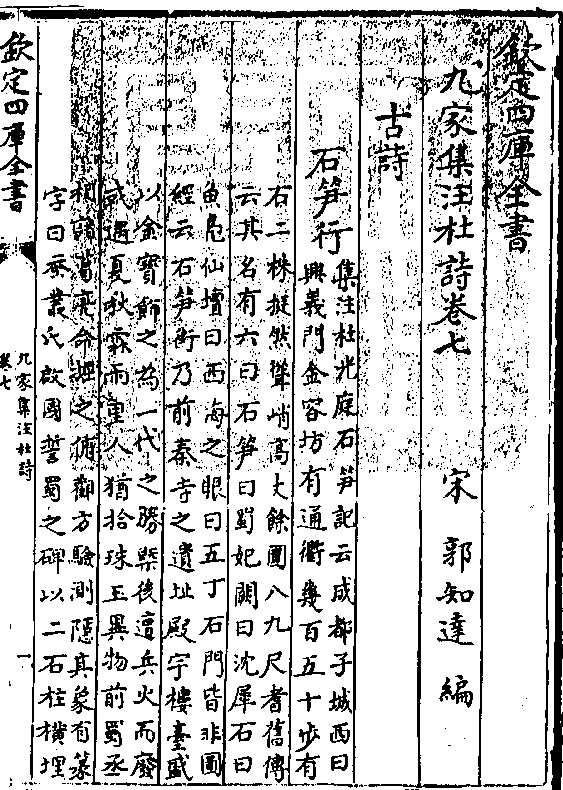 欽定四庫全書
九家集注杜詩卷七
宋　郭知達　編
古詩
石筍行
集注杜光庭石筍記云成都子城西曰
興義門金容坊有通衢幾百五十步有
石二株挺然聳峭高丈餘圍八九尺耆舊傳
云其名有六曰石筍曰蜀妃闕曰沈犀石曰
魚鳧仙壇曰西海之眼曰五丁石門皆非圖
經云石筍街乃前秦寺之遺址殿宇樓臺盛
以金寶飾之為一代之勝槩後遭兵火而廢
或遇夏秋霖雨童人猶拾珠玉異物前蜀丞
相諸葛亮命掘之俯觀方驗測隱其象有篆
字曰蠶叢氏啟國誓蜀之碑以二石柱橫埋
欽定四庫全書
九家集注杜詩
卷七
一